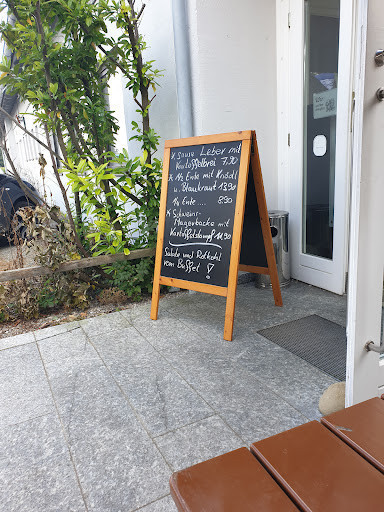 x Saure Leber mit
Kartoffelbrei 7.90
x 1/2 Ente mit Knödl
u. Blaukraut 13.90
1/4 Ente .... 8.90
x Schweins-
Magerbacke mit
Kartoffelstampf 11.90
Salate und Rotkohl
vom Buffet !